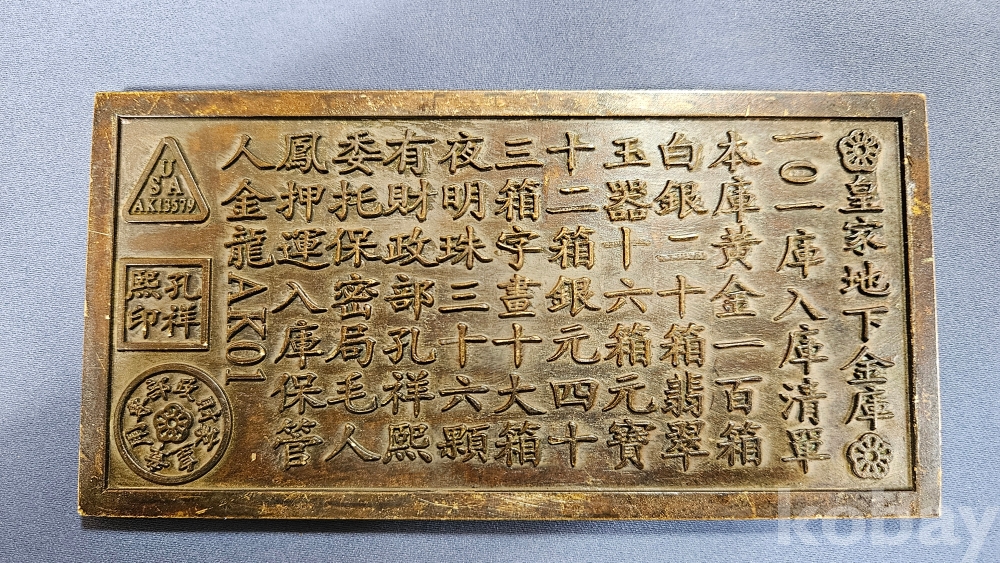 皇家地下金庫
一〇一庫入庫清單
本庫黃金一百箱
白銀二十箱翡翠
玉器十六箱元寶
十二箱銀元四十
三箱字畫十大箱
夜明珠三十六顆
有財政部孔祥熙
委托保密局毛人
鳳押運入庫保管
人金龍AK01
U
SA
AK13579
孔祥
熙印
財政部
kobay